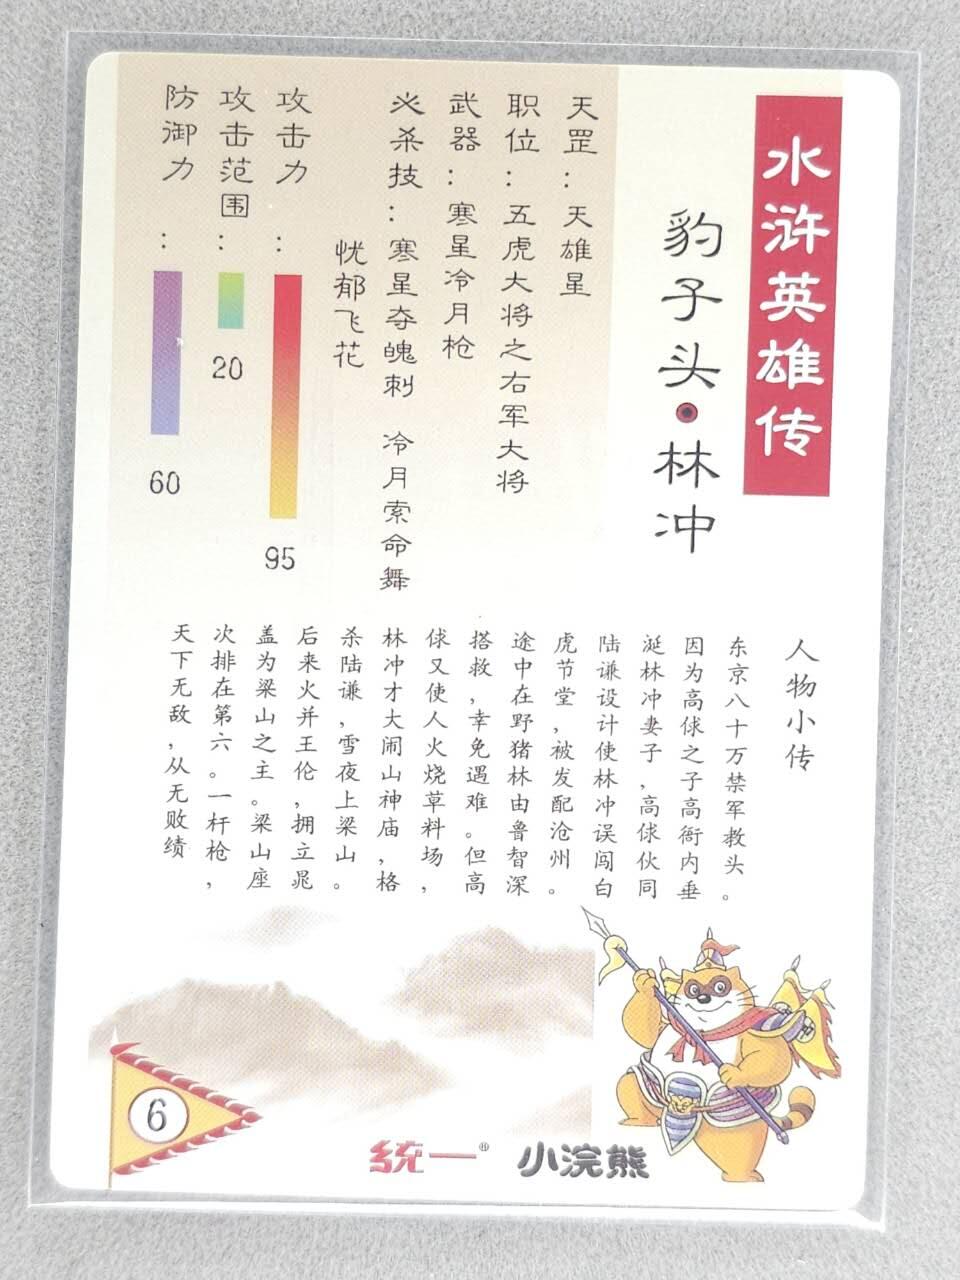 水浒英雄传
豹子头·林冲
天罡：天雄星
职位：五虎大将之右军大将
武器：寒星冷月枪
必杀技：寒星夺魄刺 冷月索命舞
忧郁飞花
攻击力：
95
攻击范围：
20
防御力：
60
人物小传
东京八十万禁军教头。
因为高俅之子高衙内垂
涎林冲妻子，高俅伙同
陆谦设计使林冲误闯白
虎节堂，被发配沧州。
途中在野猪林由鲁智深
搭救，幸免遇难。但高
俅又使人火烧草料场，
林冲才大闹山神庙，格
杀陆谦，雪夜上梁山。
后来火并王伦，拥立晁
盖为梁山之主。梁山座
次排在第六。一杆枪，
天下无敌，从无败绩
6
統一®
小浣熊